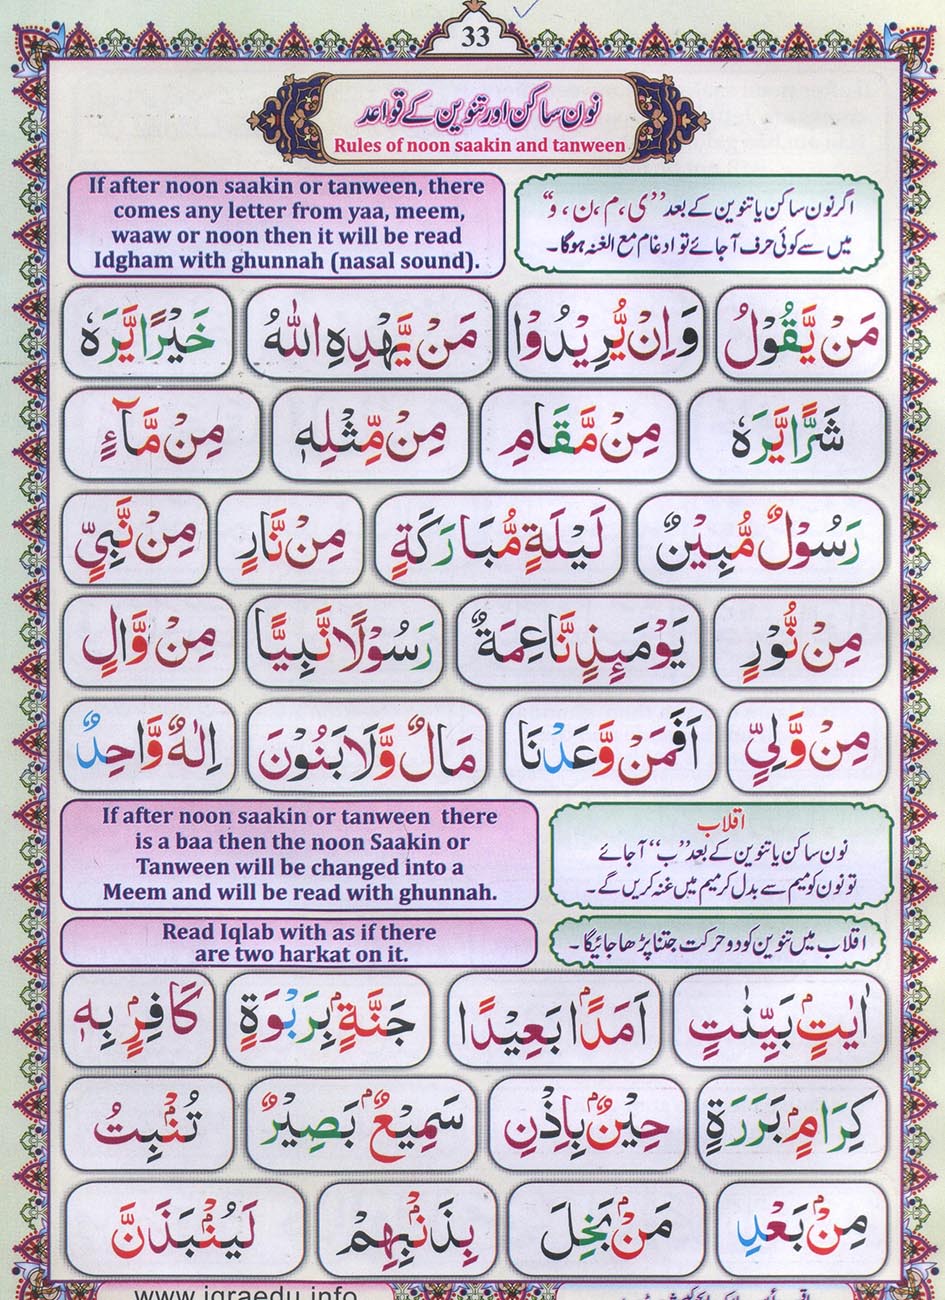 33
نون ساکن اور تنوین کے قواعد
Rules of noon saakin and tanween
If after noon saakin or tanween, there
comes any letter from yaa, meem,
waaw or noon then it will be read
Idgham with ghunnah (nasal sound).
اگر نون ساکن یا تنوین کے بعد ”ی، م، ن، و“
میں سے کوئی حرف آجائے تو ادغام مع الغنہ ہوگا۔
مَنْ يَّقُوْلُ وَاِنْ يُّرِيْدُوْا مَنْ يَّهْدِهِ اللهُ خَيْرًا يَّرَهٗ
شَرًّا يَّرَهٗ مِنْ مَّقَامِ مِنْ مِّثْلِهٖ مِنْ مَّآءٍ
رَسُوْلٌ مُّبِيْنٌ لَيْلَةٍ مُّبَارَكَةٍ مِنْ نَّارٍ مِنْ نَّبِيٍّ
مِنْ نُّوْرٍ يَوْمَئِذٍ نَّاعِمَةٌ رَسُوْلًا نَّبِيًّا مِنْ وَّالٍ
مِنْ وَّلِيٍّ اَفَمَنْ وَّعَدْنَا مَالٌ وَّلَا بَنُوْنَ اِلٰهٌ وَّاحِدٌ
If after noon saakin or tanween there
is a baa then the noon Saakin or
Tanween will be changed into a
Meem and will be read with ghunnah.
اقلاب
نون ساکن یا تنوین کے بعد ”ب“ آجائے
تو نون کو میم سے بدل کر میم میں غنہ کریں گے۔
Read Iqlab with as if there
are two harkat on it.
اقلاب میں تنوین کو دو حرکت جتنا پڑھا جائیگا۔
اٰيٰتٍۭ بَيِّنٰتٍ اَمَدًۢا بَعِيْدًا جَنَّةٍۭ بِرَبْوَةٍ كَافِرٍۭ بِهٖ
كِرَامٍۭ بَرَرَةٍ حِيْنٍۭ بِاِذْنِ سَمِيْعٌۢ بَصِيْرٌ تُنْۢبِتُ
مِنْۢ بَعْدِ مَنْۢ بَخِلَ بِذَنْۢبِهِمْ لَيُنْۢبَذَنَّ
www.iqraedu.info